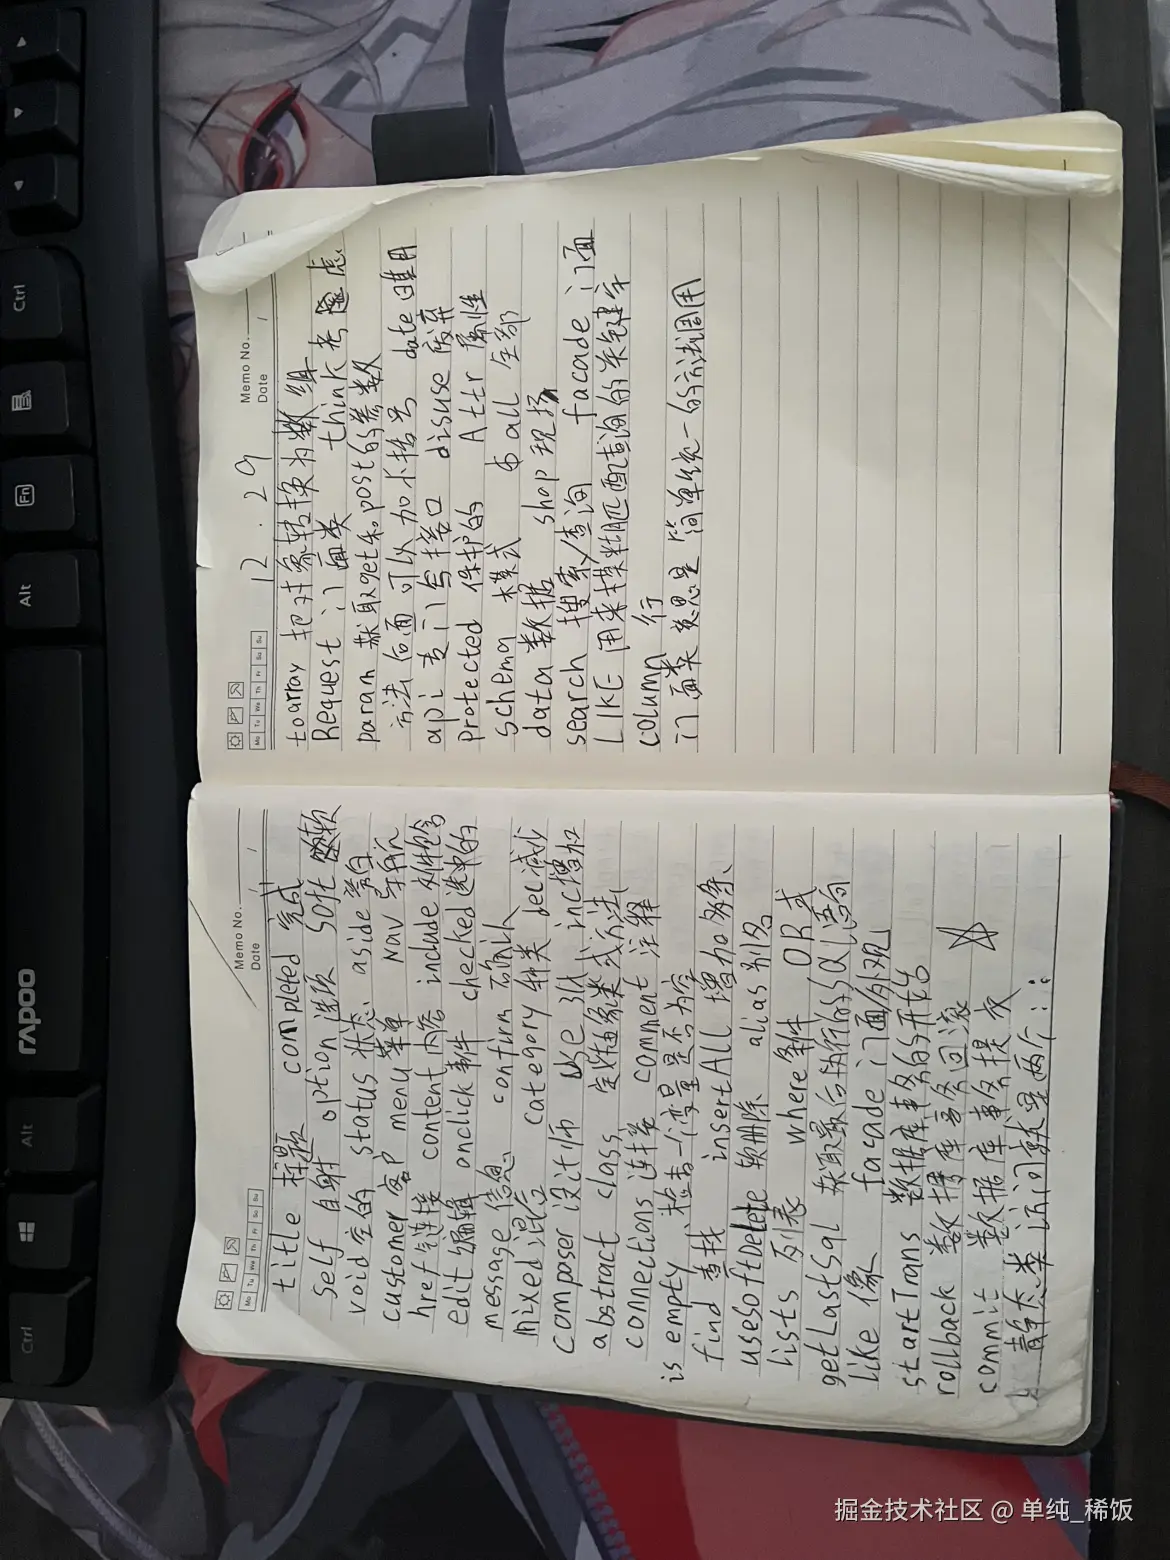 Memo No.
Date
Mo Tu We Th Fr Sa Su
title 标题 completed 完成
self 自身 option 选项 soft 软
void 空的 status 状态 aside 旁白
customer 客户 menu 菜单 nav 导航
href 链接 content 内容 include 文件包含
edit 编辑 onclick 事件 checked 选中的
message 信息 confirm 确认
mixed 混合 category 种类 dec 减少
composer 设计师 use 引入 inc 增加
abstract class 定义抽象类或方法
connections 连接 comment 注释
is empty 检查一个变量是否为空
find 查找 insertAll 增加多条
useSoftDelete 软删除 alias 别名
lists 列表 where条件 OR 或
getLastSql 获取最后执行的SQL语句
like 像 facade 门面/外观
startTrans 数据库事务的开始
rollback 数据库事务回滚
commit 数据库事务提交
静态类访问就是两个::
Memo No.
Date
Mo Tu We Th Fr Sa Su
12.29
toarray 把对象转换为数组
Request 门面类 think 考虑
param 获取get和post的参数
方法后面可以加小括号 date 日期
api 专门写接口 disuse 废弃
protected 保护的 Attr 属性
schema 模式 all 全部
data 数据 shop 现场
search 搜索/查询 facade 门面
LIKE 用来模糊匹配查询的关键字
column 行
门面类 意思是 简单统一的方法调用
Ctrl
Fn
Alt
rapoo
Alt
Ctrl
掘金技术社区 @ 单纯_稀饭